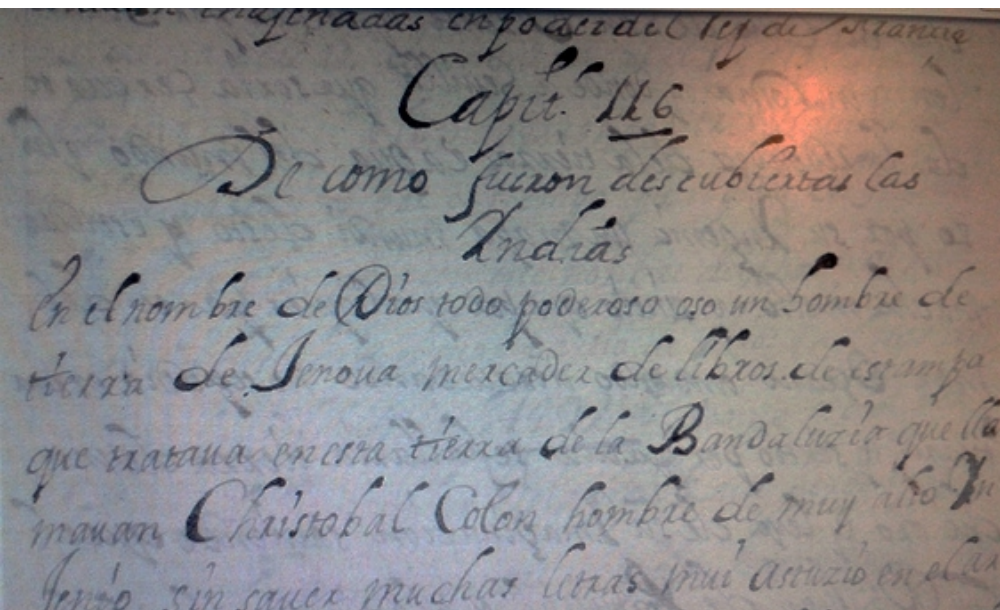 enajenadas en poder del Rey de Francia
Capit. 116
De como fueron descubiertas las
Indias
En el nombre de Dios todo poderoso oso un hombre de
tierra de Jenoua mercader de libros de estampa
que trataua en esta tierra de la Bandaluzia que lla
mauan Christobal Colon hombre de muy alto Yn
Jenio sin sauer muchas letras mui astuzio en el ar